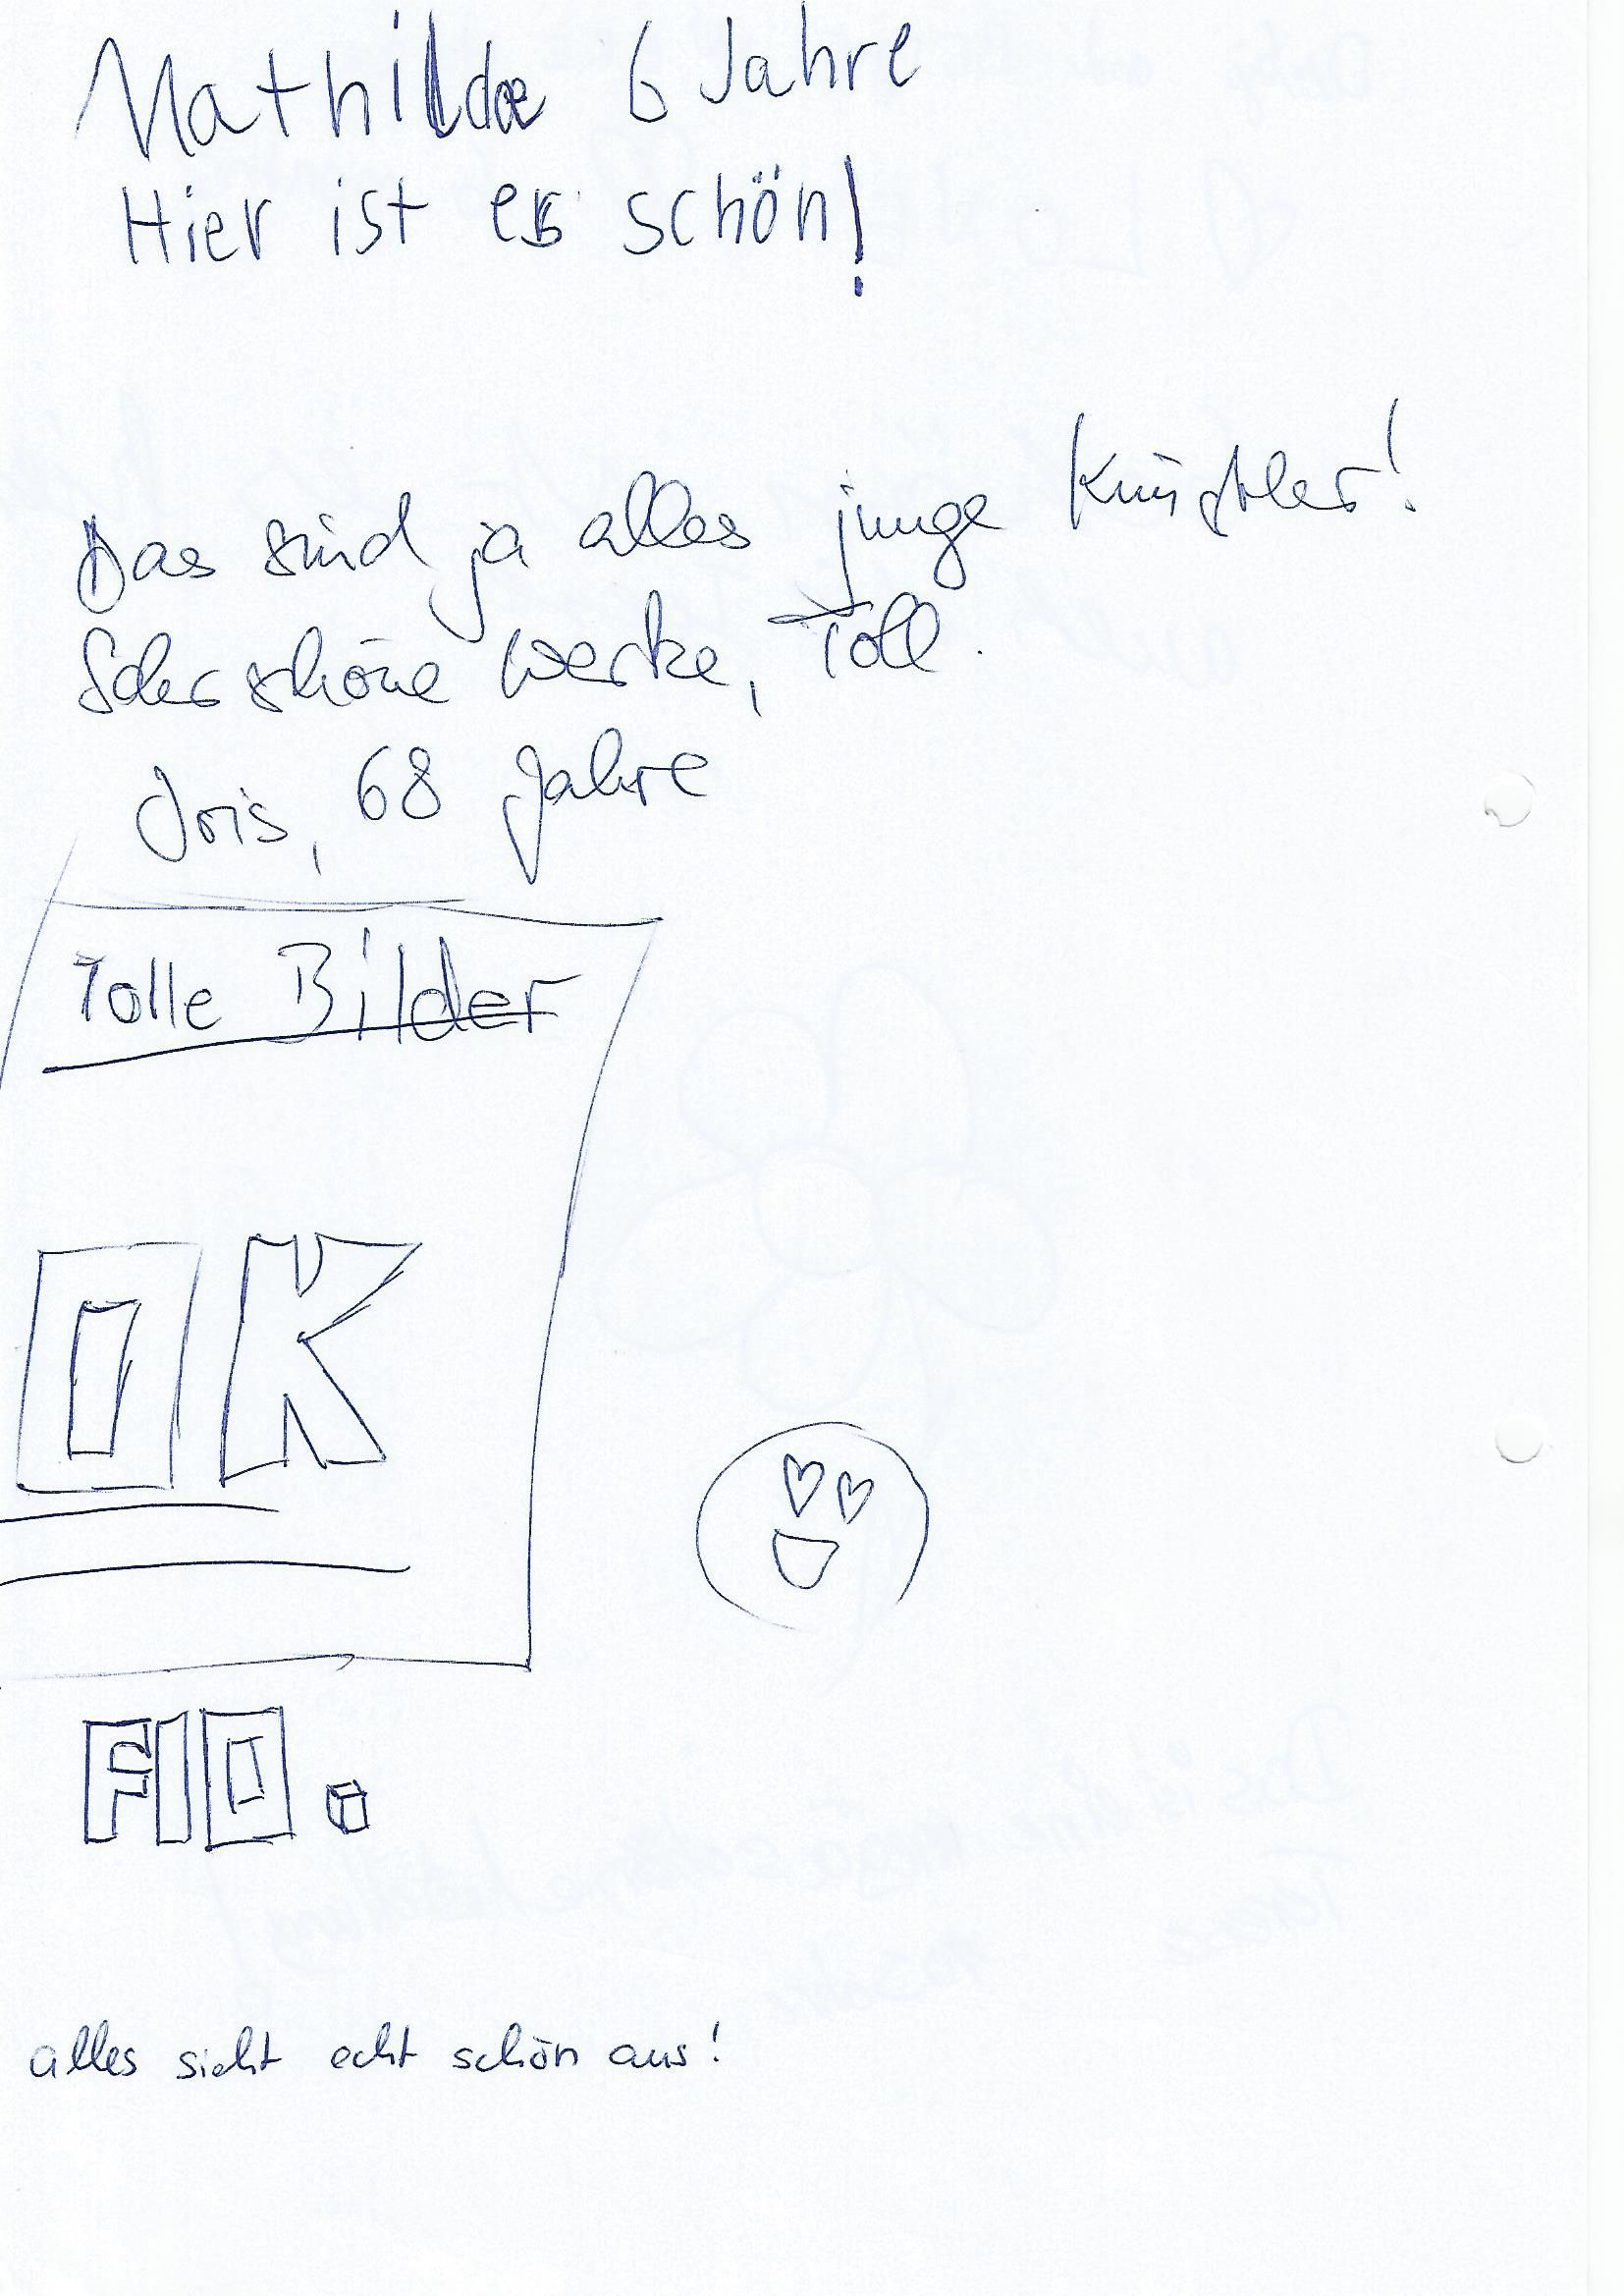 Mathilda 6 Jahre
Hier ist es schön!
Das sind ja alles junge Künstler!
Sehr schöne Werke, Toll.
68 Jahre
Tolle Bilder
OK
FIO.
alles sieht echt schön aus!